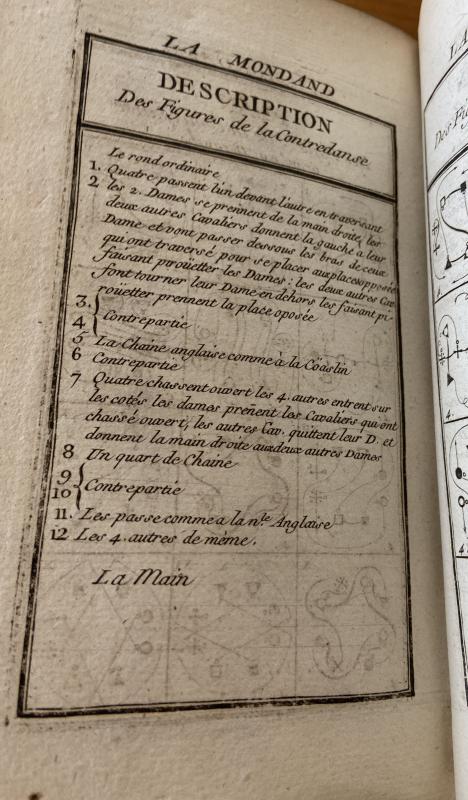 LA MONDAND
DESCRIPTION
Des Figures de la Contredanse
Le rond ordinaire
1. Quatre passent l'un devant l'autre en traversant
2 les 2. Dames se prennent de la main droite, les
deux autres Cavaliers donnent la gauche a leur
Dame et vont passer dessous les bras de ceux
qui ont traversé pour se placer aux places opposées
faisant piroüetter les Dames: les deux autres Cav
font tourner leur Dame en dehors les faisant pi-
roüetter prennent la place oposée
3. 4. { Contrepartie
5 La Chaine anglaise comme à la Cöaslin
6 Contrepartie
7 Quatre chassent ouvert les 4. autres entrent sur
les cotés les dames prenent les Cavaliers qui ont
chassé ouvert, les autres Cav. quittent leur D. et
donnent la main droite aux deux autres Dames
8 Un quart de Chaine
9 10 { Contrepartie
11. Les passe comme a la nlle Anglaise
12 Les 4. autres de même.
La Main